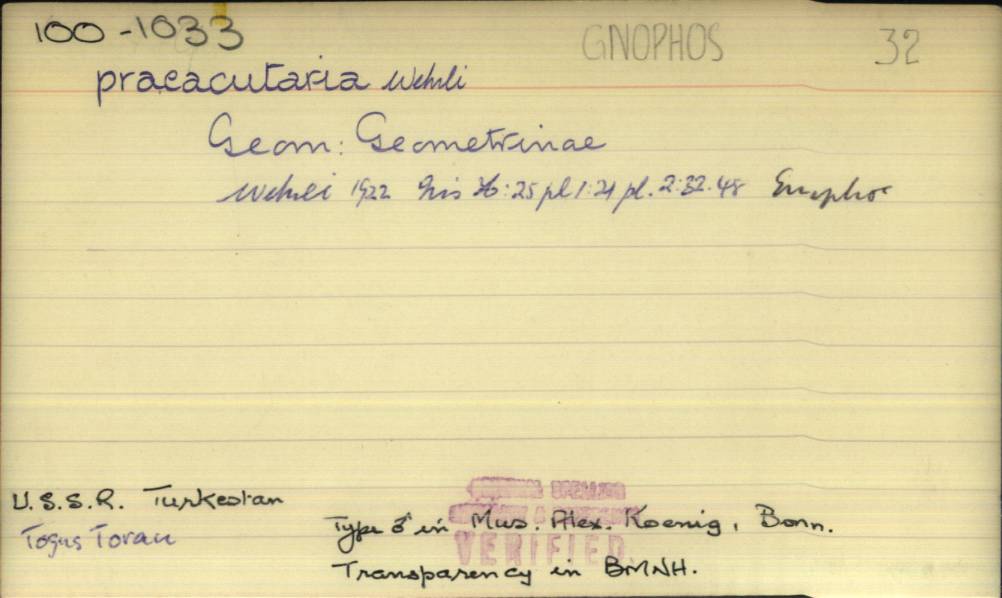 100-1033 GNOPHOS 32
praeacutaria Wehrli
Geom: Geometrinae
Wehrli 1922 Iris 36:25 pl 1:21 pl. 2:32.48 Gnophos
U.S.S.R. Turkestan
Togus Torau
Type ♂ in Mus. Alex. Koenig, Bonn.
VERIFIED
Transparency in BMNH.